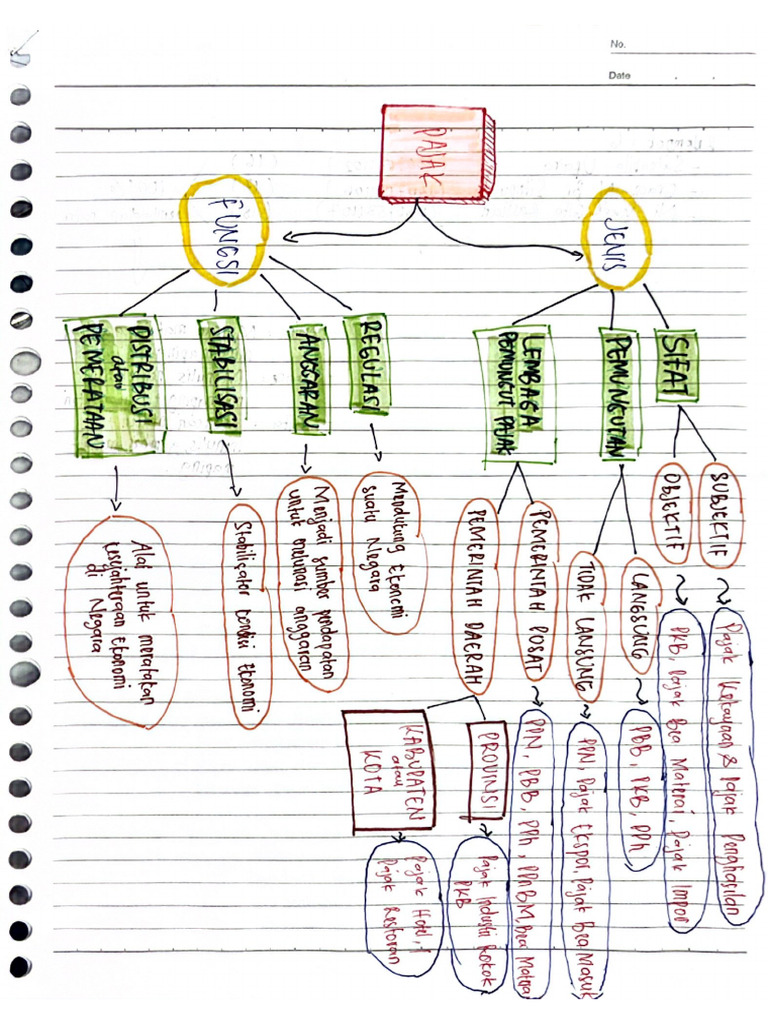 No.
Date
PAJAK
JENIS
SIFAT
SUBJEKTIF
Pajak Kekayaan & Pajak Penghasilan
OBJEKTIF
PKB, Pajak Bea Materai, Pajak Impor
PEMUNGUTAN
LANGSUNG
PBB, PKB, PPh,
TIDAK LANSUNG
PPN, Pajak Ekspor, Pajak Bea Masuk
LEMBAGA
PEMUNGUT PAJAK
PEMERINTAH PUSAT
PPN, PBB, PPh, PPnBM, Bea Materai
PEMERINTAH DAERAH
PROVINSI
Pajak Industri Rokok
PKB
KABUPATEN
atau
KOTA
Pajak Hotel,
Pajak Restoran
FUNGSI
REGULASI
Mendukung Ekonomi
suatu Negara
ANGGARAN
Menjadi sumber pendapatan
untuk melunasi anggaran
STABILISASI
Stabilisator kondisi Ekonomi
DISTRIBUSI
atau
PEMERATAAN
Alat untuk meratakan
kesejahteraan Ekonomi
di
Negara